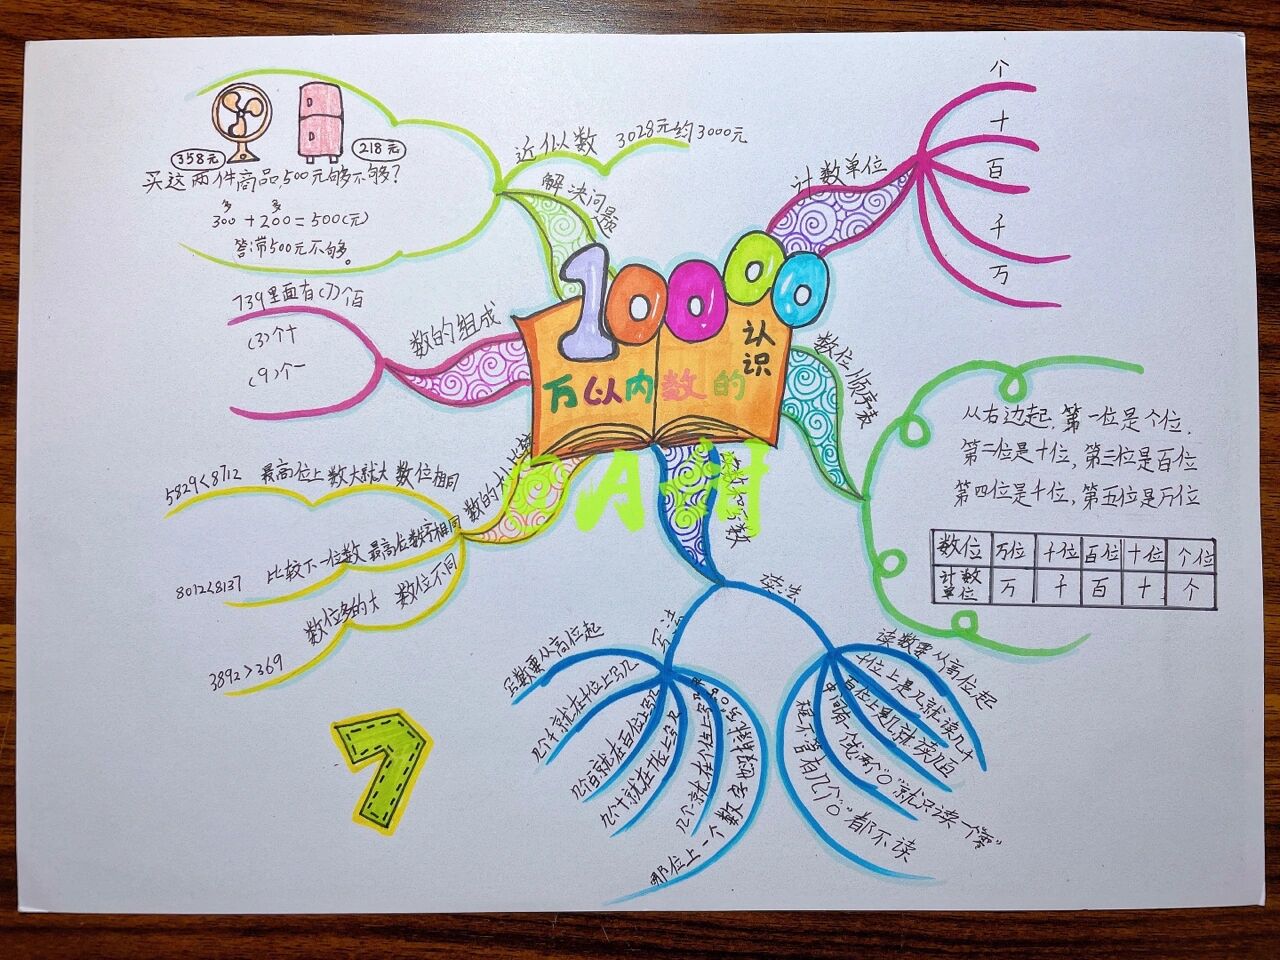 10000
认识
万以内数的
近似数 3028元约3000元
解决问题
358元
218元
买这两件商品,500元够不够?
多 多
300+200=500(元)
答:带500元不够。
数的组成
739里面有(7)个百
(3)个十
(9)个一
数的大小比较
5829<8712 最高位上数大就大 数位相同
8012<8137 比较下一位数 最高位数字相同
3892>369 数位多的大 数位不同
计数单位
个
十
百
千
万
数位顺序表
从右边起,第一位是个位,
第二位是十位,第三位是百位
第四位是千位,第五位是万位
数位 万位 千位 百位 十位 个位
计数单位 万 千 百 十 个
写法
写数要从高位起
几个千就在千位上写几
几个百就在百位上写几
几个十就在十位上写几
几个一就在个位上写几
哪位上一个数
读法
读数要从高位起
千位上是几就读几千
百位上是几就读几百
中间有一个或两个"0"就只读一个"零"
不管有几个"0"都不读
7